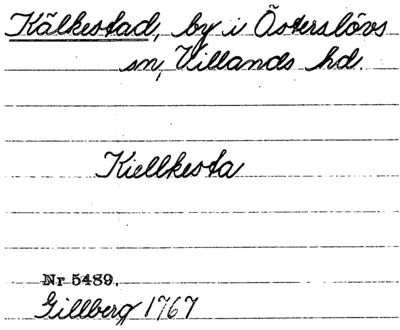 Kälkestad, by i Österslövs
sn, Villands hd.
Kiellkesta
Nr 5489.
Gillberg 1767